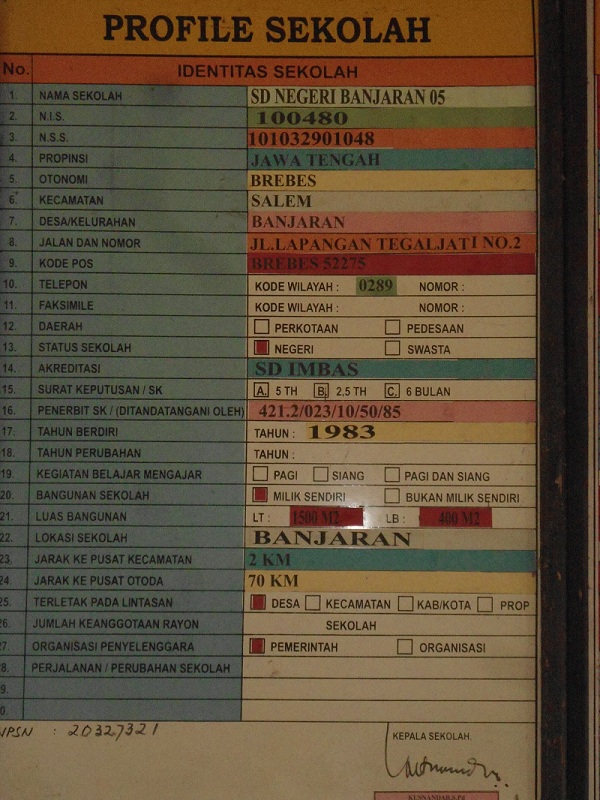 PROFILE SEKOLAH
No. IDENTITAS SEKOLAH
1. NAMA SEKOLAH SD NEGERI BANJARAN 05
2. N.I.S. 100480
3. N.S.S. 101032901048
4. PROPINSI JAWA TENGAH
5. OTONOMI BREBES
6. KECAMATAN SALEM
7. DESA/KELURAHAN BANJARAN
8. JALAN DAN NOMOR JL.LAPANGAN TEGALJATI NO.2
9. KODE POS BREBES 52275
10. TELEPON KODE WILAYAH : 0289 NOMOR :
11. FAKSIMILE KODE WILAYAH : NOMOR :
12. DAERAH PERKOTAAN PEDESAAN
13. STATUS SEKOLAH NEGERI SWASTA
14. AKREDITASI SD IMBAS
15. SURAT KEPUTUSAN / SK A. 5 TH B. 2,5 TH C. 6 BULAN
16. PENERBIT SK / (DITANDATANGANI OLEH) 421.2/023/10/50/85
17. TAHUN BERDIRI TAHUN : 1983
18. TAHUN PERUBAHAN TAHUN :
19. KEGIATAN BELAJAR MENGAJAR PAGI SIANG PAGI DAN SIANG
20. BANGUNAN SEKOLAH MILIK SENDIRI BUKAN MILIK SENDIRI
21. LUAS BANGUNAN LT : 1500 M2 LB : 400 M2
22. LOKASI SEKOLAH BANJARAN
23. JARAK KE PUSAT KECAMATAN 2 KM
24. JARAK KE PUSAT OTODA 70 KM
25. TERLETAK PADA LINTASAN DESA KECAMATAN KAB/KOTA PROP
26. JUMLAH KEANGGOTAAN RAYON SEKOLAH
27. ORGANISASI PENYELENGGARA PEMERINTAH ORGANISASI
28. PERJALANAN / PERUBAHAN SEKOLAH
9.
0.
NPSN : 20327321
KEPALA SEKOLAH.
KUSNANDAR S.Pd